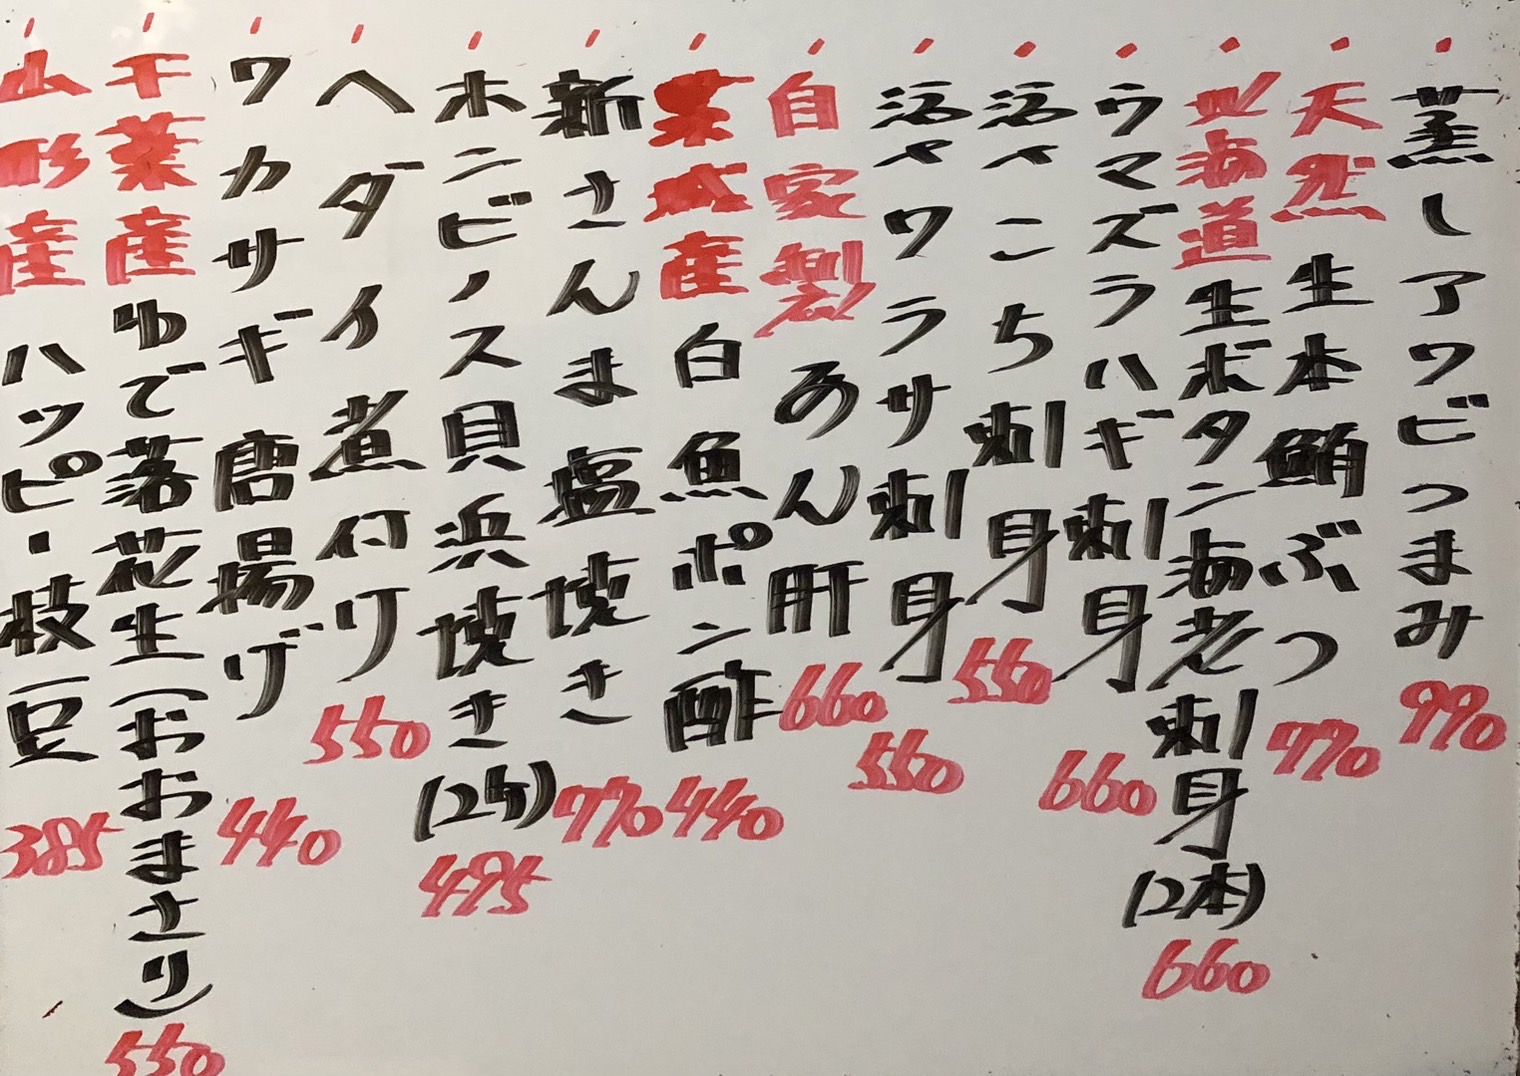 蒸しアワビつまみ 990
天然 生本鮪ぶつ 770
北海道 生ボタン海老刺身(2本) 660
ウマズラハギ刺身 660
活〆こち刺身 550
活〆ワラサ刺身 550
自家製 あん肝 660
茨城産 白魚ポン酢 440
新さんま 塩焼き 770
ホンビノス貝 浜焼き(2ケ) 495
ヘダイ 煮付け 550
ワカサギ 唐揚げ 440
千葉産 ゆで落花生(おおまさり) 550
山形産 ハッピー枝豆 385